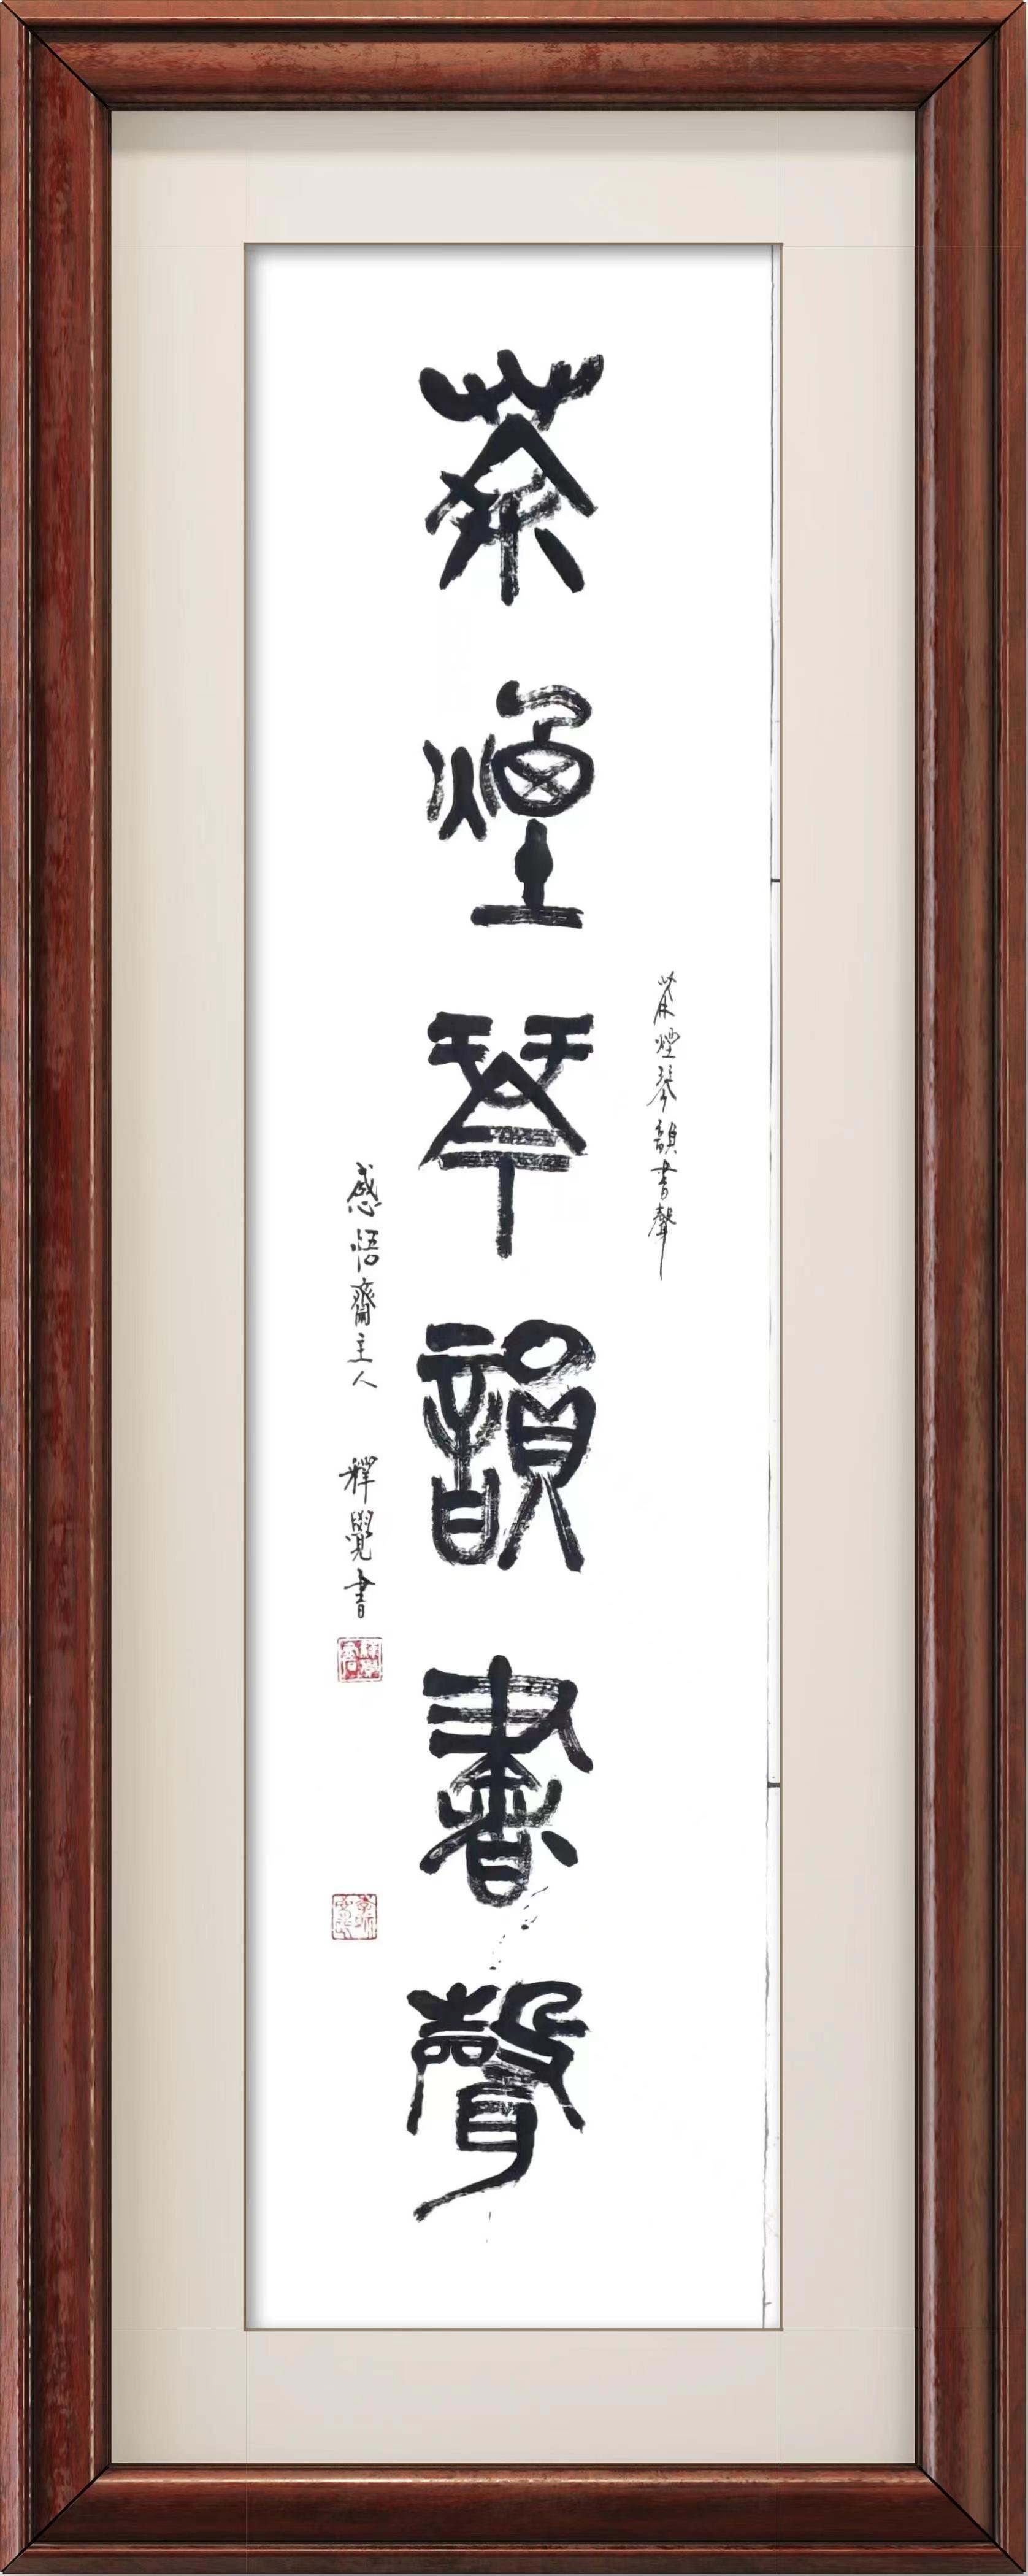 茶煙琴韻書聲
茶煙琴韻書聲
感悟齋主人 釋覺書